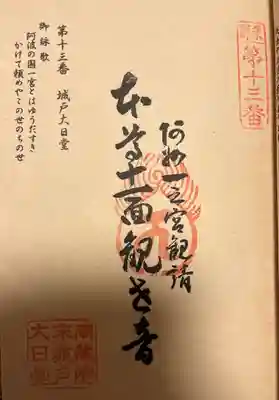 第十三番
阿州一之宮観請
本尊十一面観世音
第十三番 城戸大日堂
御詠歌
阿波の国一宮とはゆうだすき
かけて頼めやこの世のちの世
城戸
大日堂